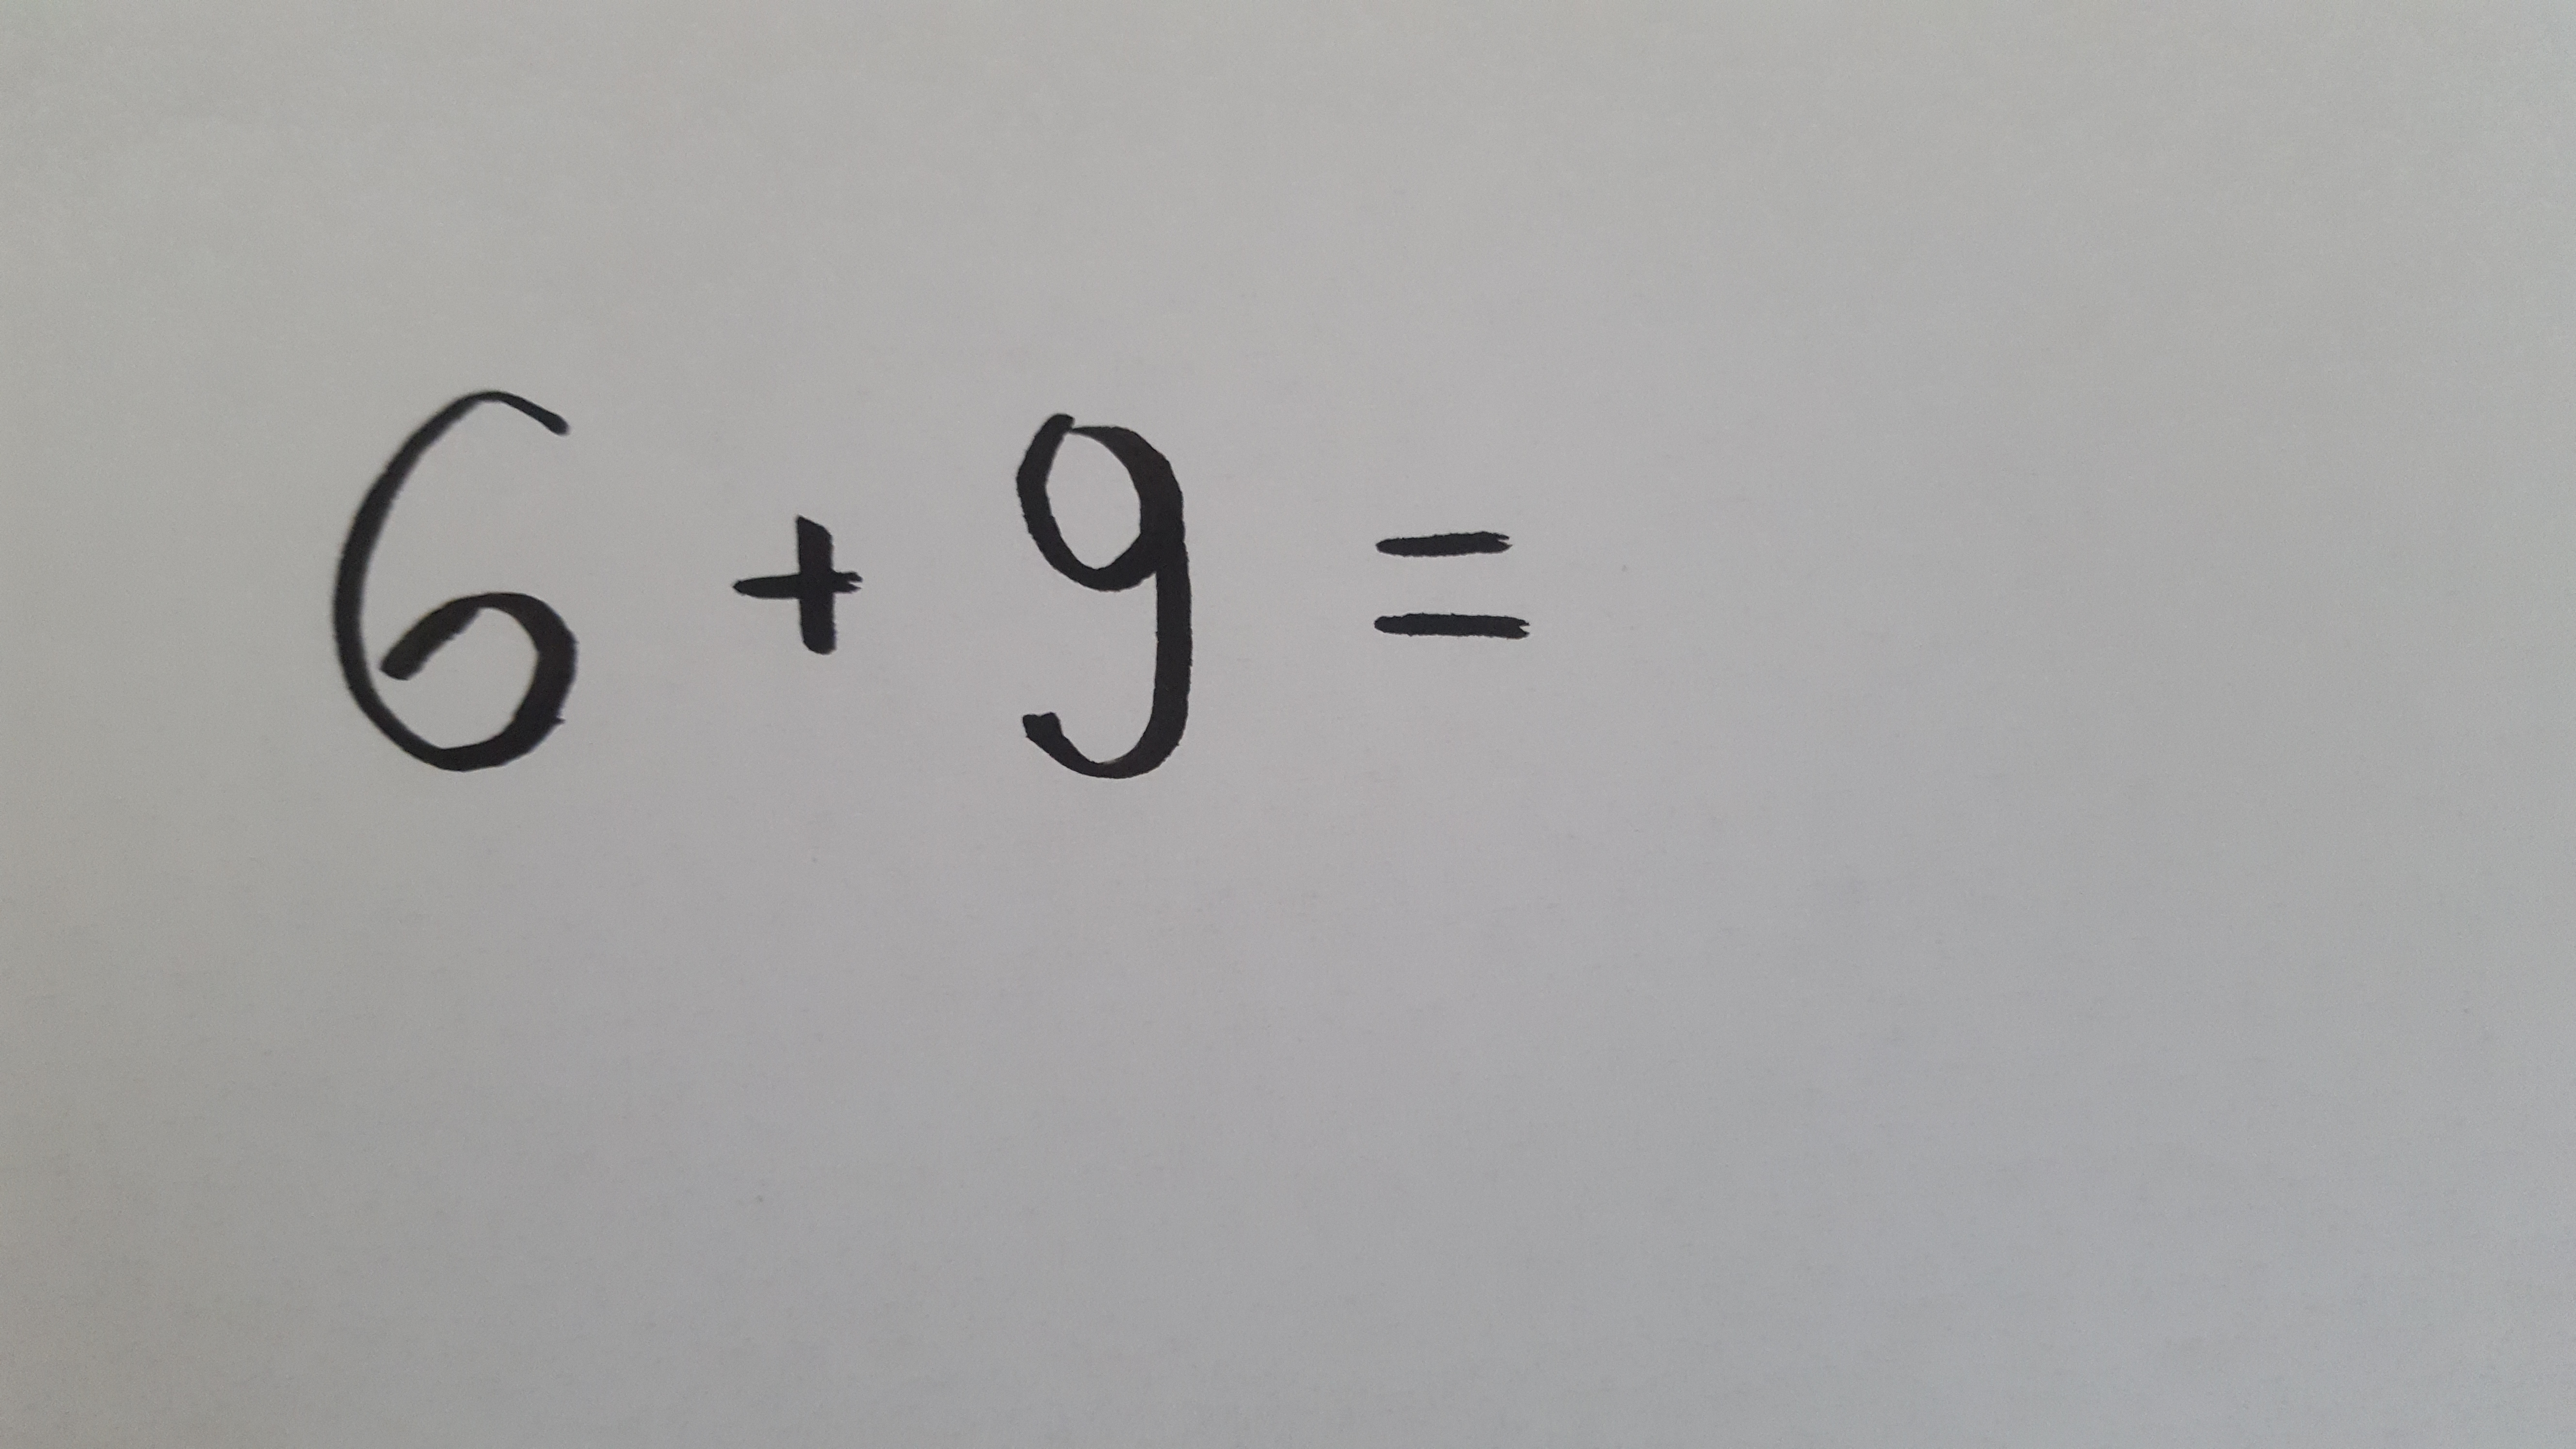 6 + 9 =